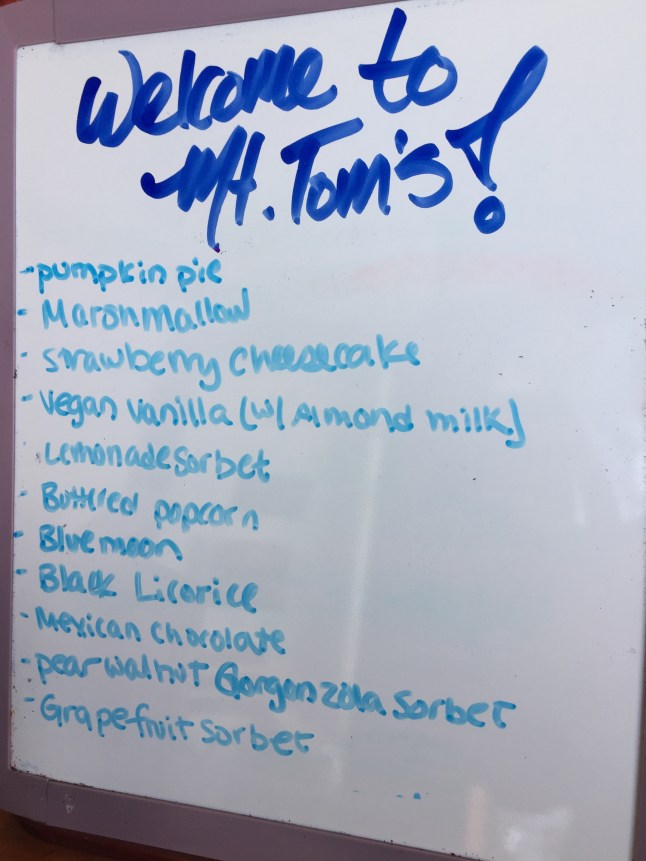 Welcome to
Mt. Tom's!
- pumpkin pie
- Marshmallow
- strawberry cheesecake
- vegan vanilla (w/ Almond milk)
Lemonade sorbet
- Buttered popcorn
- Blue moon
- Black Licorice
- Mexican chocolate
- pear walnut Gorgonzola sorbet
- Grapefruit sorbet